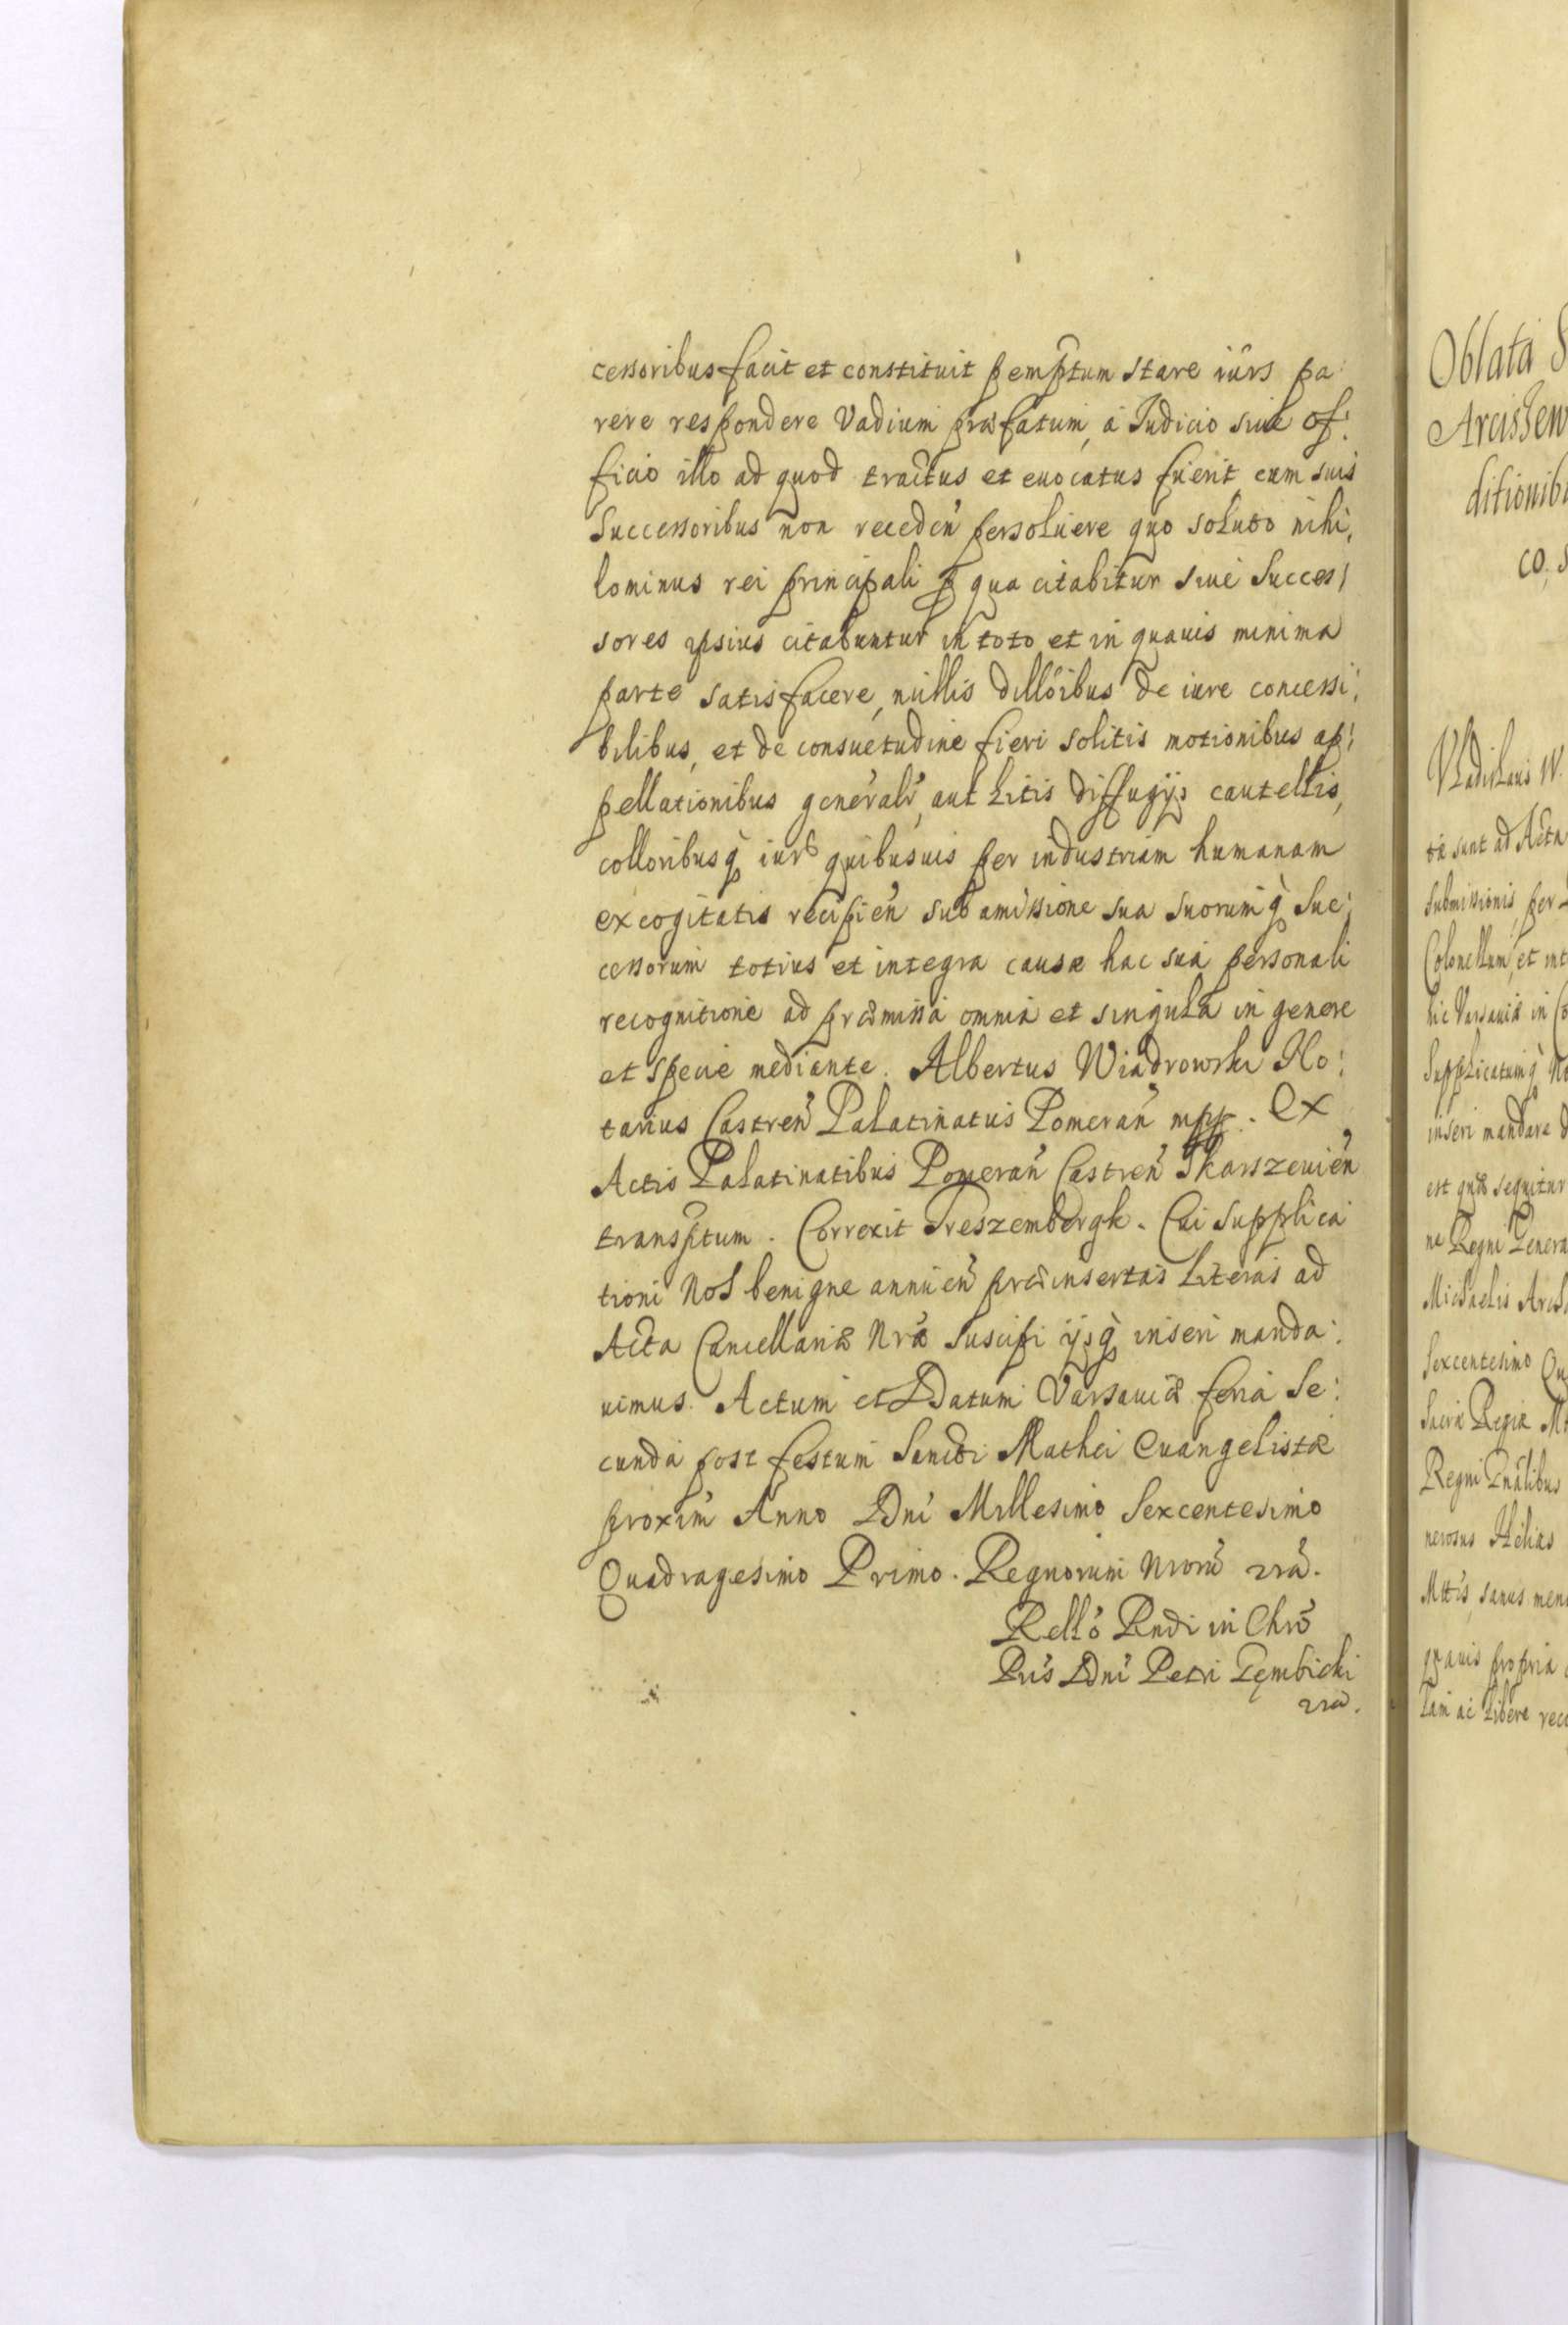 cessoribus facit et constituit pemptum stare iurs pa
rere respondere Vadium præfatum, a Iudicio siue of:
ficio illo ad quod tractus et euocatus fuerit cum suis
Successoribus non receden̄ persoluere quo soluto nihi,
lominus rei principali ꝓ qua citabitur siue Succes/
sores ipsius citabuntur in toto et in quauis minima
parte satisfacere, nullis dillõibus de iure concessi:
bilibus, et de consuetudine fieri solitis motionibus ap:
pellationibus general̃r, aut Litis diffugijs cautellis,
colloribusq̀ iurs quibusuis per industriam humanam
excogitatis recipien̄ sub amissione sua suorumq̀ Suc:
cessorum totius et integra causæ hac sua personali
recognitione ad præmissa omnia et singula in genere
et specie mediante. Albertus Wiadrowski No:
tarius Castren̄ Palatinatus Pomeran̄ mpp. Ex
Actis Palatinatibus Pomeran̄ Castren̄ Skarszeuien̄
transptum. Correxit Treszembergk. Cui supplica
tioni Nos benigne annuen̄ præinsertas Literas ad
Acta Cancellariæ Nræ suscipi ijsq̀ inseri manda:
uimus. Actum et Datum Varsauiæ feria Se:
cunda post festum Sancti Mathei Euangelistæ
proxim̄ Anno Dni Millesimo Sexcentesimo
Quadragesimo Primo. Regnorum Nrorũ rrã.
Rellõ Rndi in Chrõ
Pris Dni Petri Gembicki
rrã.
Oblata
Vladislaus IV.
ta sunt ad Acta
submissionis per
Colonellum, et int
hic Varsauiæ in
Supplicatumq̀ No
inseri mandare
est quæ sequitur
ne Regni Genera
Michaelis Arch
Sexcentesimo Qu
Sacræ Regiæ
Regni Gnãlibus
nerosus Helias
Mttis, sanus men
quauis propria
lam ac Libere reco